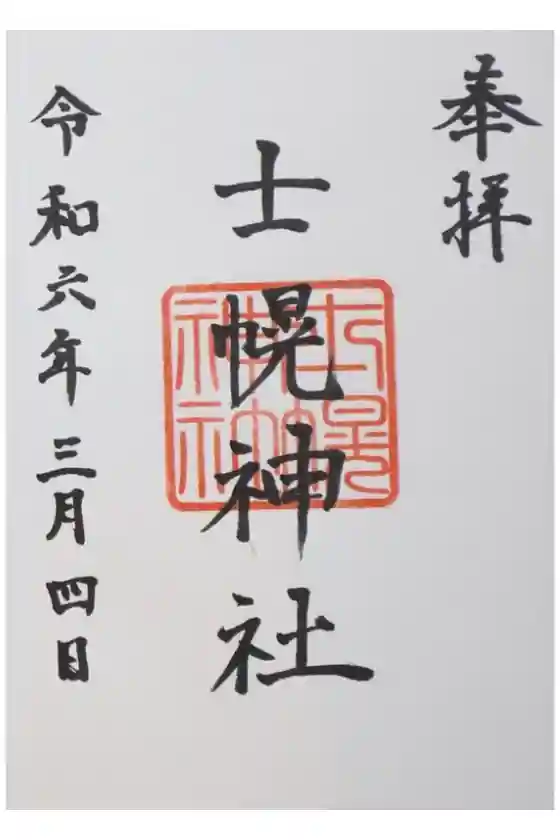 奉拝
士幌神社
令和六年三月四日
士幌
神社